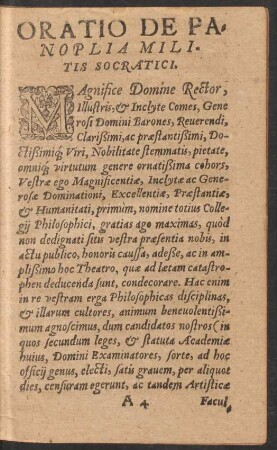 ORATIO DE PA-
NOPLIA MILI-
TIS SOCRATICI.
MAgnifice Domine Rector,
Illustris, & Inclyte Comes, Gene
rosi Domini Barones, Reverendi,
Clarissimi, ac præstantissimi, Do-
ctissimiq́; Viri, Nobilitate stemmatis, pietate,
omniq́; virtutum genere ornatissima cohors,
Vestræ ego Magnificentiæ, Inclytæ ac Gene-
rosæ Dominationi, Excellentiæ, Præstantiæ,
& Humanitati, primùm, nomine totius Colle-
gij Philosophici, gratias ago maximas, quòd
non dedignati sitis vestra præsentia nobis, in
actu publico, honoris caussa, adesse, ac in am-
plissimo hoc Theatro, quæ ad lætam catastro-
phen deducenda sunt, condecorare. Hac enim
in re vestram erga Philosophicas disciplinas,
& illarum cultores, animum benevolentissi-
mum agnoscimus, dum candidatos nostros (in
quos secundum leges, & statuta Academiæ
huius, Domini Examinatores, sorte, ad hoc
officij genus, electi, satis gravem, per aliquot
dies, censuram egerunt, ac tandem Artisticæ
A 4 Facul